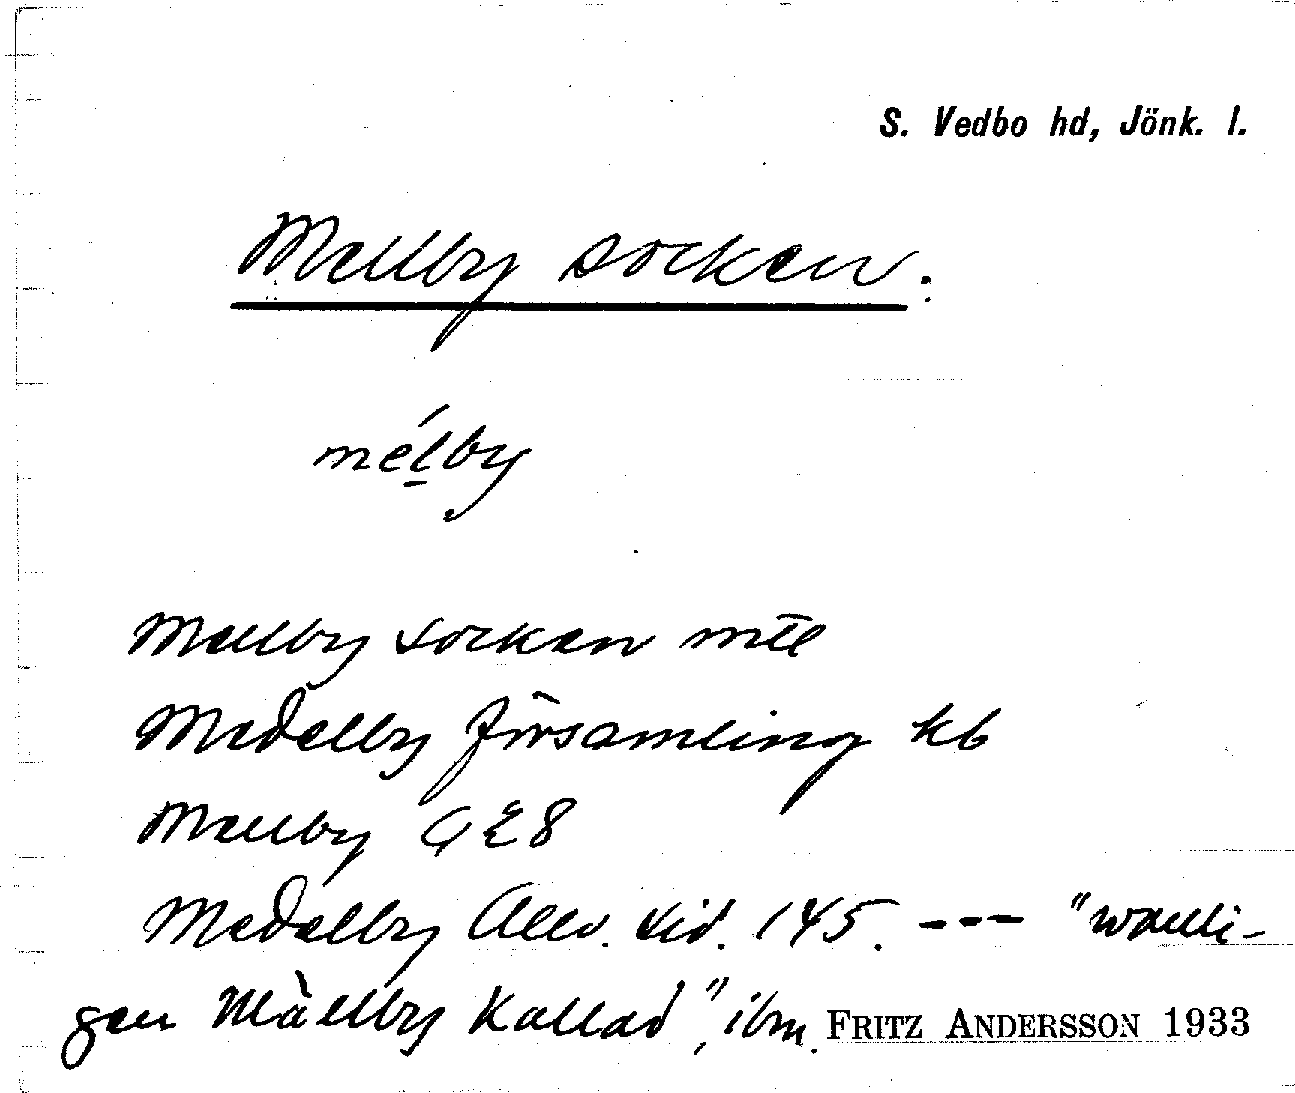 S. Vedbo hd, Jönk. l.
Mellby socken.
mélby
Mellby socken mtl
Medelby församling kb
Mellby GE8
Medelby Allv. sid. 145. --- "wanli-
gen Mällby kallad", ibm.
FRITZ ANDERSSON 1933